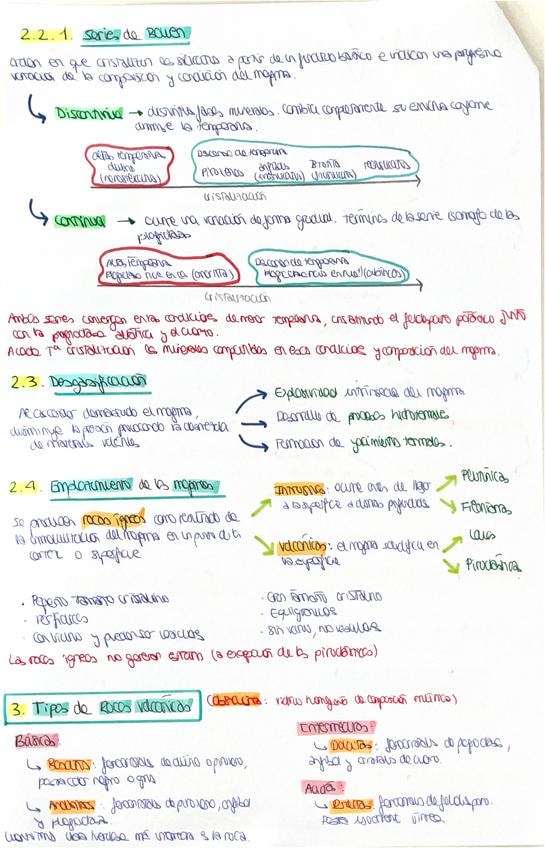 2.2.1. Series de Bowen
orden en que cristalizan los silicatos a partir de un fundido basáltico e indican una progresiva
variación de la composición y condición del magma.
Discontinua → distintas fases minerales. Cambia completamente su estructura conforme
disminuye la temperatura.
altas temperaturas
olivino
(nesosilicatos)
Descenso de temperatura
Piroxenos anfíboles Biotita
(inosilicatos)
cristalización
Continua → ocurre una variación de forma gradual. Términos de la serie isomorfa de las
plagioclasas
Altas temperaturas
Plagioclasa rica en Ca (anortita)
Descenso de temperatura
Plagioclasa más rica en Na (albita)
cristalización
Ambas series convergen en las condiciones de menor temperatura, cristalizando el feldespato potásico junto
con la plagioclasa albítica y el cuarzo.
A cada Tª cristalizarían los minerales compatibles en esas condiciones y composición del magma.
2.3. Desgasificación
Al ascender demasiado el magma,
disminuye la presión provocando la
de materiales volátiles
Explosividad intrínseca del magma
Desarrollo de procesos hidrotermales
Formación de yacimientos termales.
2.4. Emplazamiento de los magmas
se producen rocas ígneas como resultado de
la del magma en un punto de la
corteza o superficie
Intrusivas: ocurre antes de llegar
a la superficie a ciertas profundidades
Plutónicas
Filonianas
Volcánicas: el magma solidifica en
la superficie
Lavas
Piroclásticas
· Pequeño tamaño cristalino
· Porfídicas
· Con vidrio y presentan vesículas
· Gran tamaño cristalino
· Equigranulares
· Sin vidrio, no vesículas
Las rocas ígneas no generan estratos (a excepción de las piroclásticas)
3. Tipos de Rocas volcánicas (Obsidiana: vidrio homogéneo de composición riolítica)
Básicas:
Basaltos: fenocristales de olivino o piroxeno,
pasta color negro o gris
Andesitas: fenocristales de piroxeno, anfíbol
y plagioclasa
Intermedias:
Dacitas: fenocristales de plagioclasa,
anfíbol y cristales de cuarzo.
Ácidas:
Riolitas: fenocristales de feldespato.
Pasta vítrea.